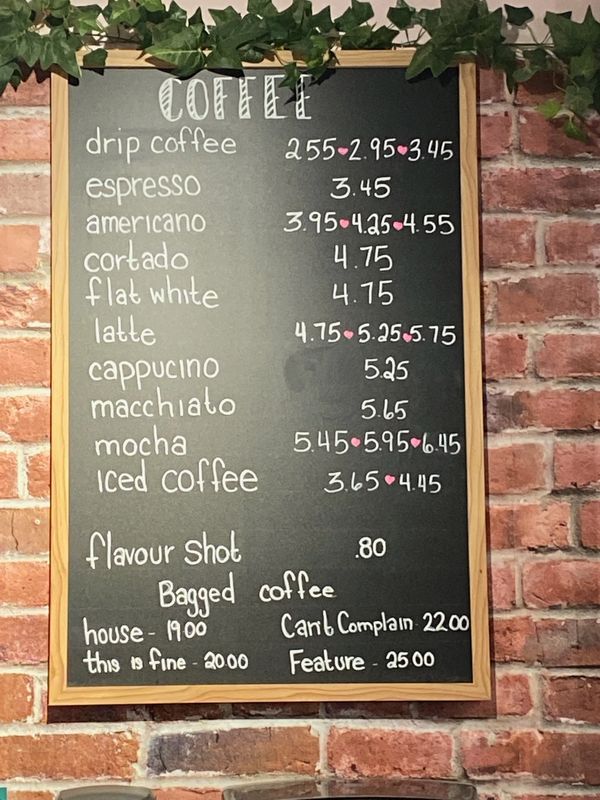 COFFEE
drip coffee 2.55 2.95 3.45
espresso 3.45
americano 3.95 4.25 4.55
cortado 4.75
flat white 4.75
latte 4.75 5.25 5.75
cappucino 5.25
macchiato 5.65
mocha 5.45 5.95 6.45
Iced coffee 3.65 4.45
flavour shot .80
Bagged coffee
house - 19 00 Can't Complain 22 00
this is fine - 20 00 Feature - 25 00